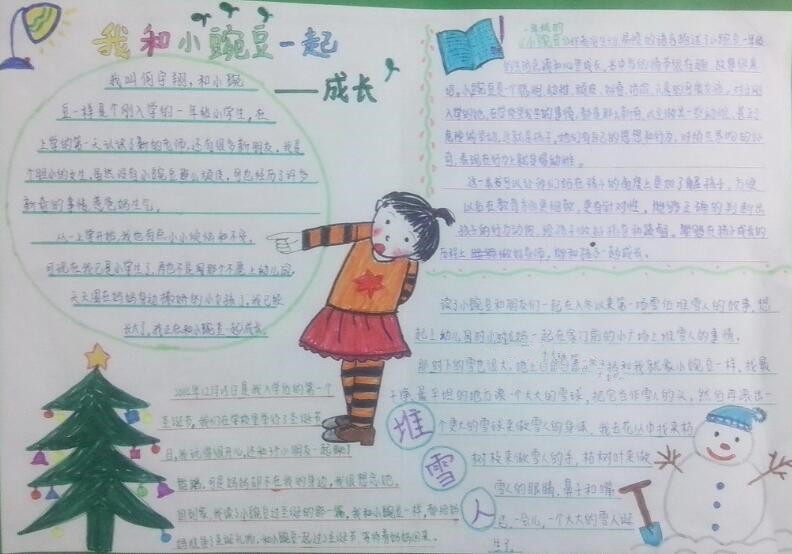 我和小豌豆一起
——成长
我叫何宇翔，和小豌
豆一样是个刚入学的一年级小学生，在
上学的第一天认识了新的老师，还有很多新朋友。我是
个胆小的女生，虽然没有小豌豆那么顽皮，可也经历了许多
新奇的事情惹爸妈生气。
从一上学开始，我也有些小小烦恼和不安，
可现在我已是小学生了，再也不是那个不愿上幼儿园，
天天围在妈妈身边撒娇的小女孩了，我已经
长大了，我正在和小豌豆一起成长。
一年级的
的生活点滴和心里成长，书中写的情节很有趣，故事很真
入学的她，在学校里发生的事情，都是那么新奇，
危险的举动，这就是孩子，他们有自己的思想和行为，对陌生事物的好
奇，表现在行为上就是爆幼稚。
这一本书可以让我们站在孩子的角度上更加了解孩子，方便
以后在教育方面更细致，更有针对性，能够正确的判断出
孩子的行为动向，给孩子做好指导和
历程上做好老师，并和孩子一起成长。
读了小豌豆和朋友们一起在入冬以来第一场雪后堆雪人的故事，想
起上幼儿园时小一起在家门前的小广场上堆雪人的事情。
那时下的雪也很大，地上和我就像小豌豆一样，找最
干净，最平坦的地方滚一个大大的雪球，把它当作雪人的头，然后再滚出一
个更大的雪球来做雪人的身体，我去花丛中找来枯
树枝来做雪人的手，枯树叶来做
雪人的眼睛，鼻子和嘴
巴，一会儿，一个大大的雪人诞
生了。
堆
雪
人
12月25日是我入学后的第一个
圣诞节，我们在学校里举行了圣诞节
日，我玩得很开心，还和3个小朋友一起
可是妈妈却不在我的身边，我很想念她。
回到家，我读了小豌豆过圣诞的那一篇，我和小豌豆一样，都给妈
妈准备了圣诞礼物，和小豌豆一起过了圣诞节，等待着妈妈回来。